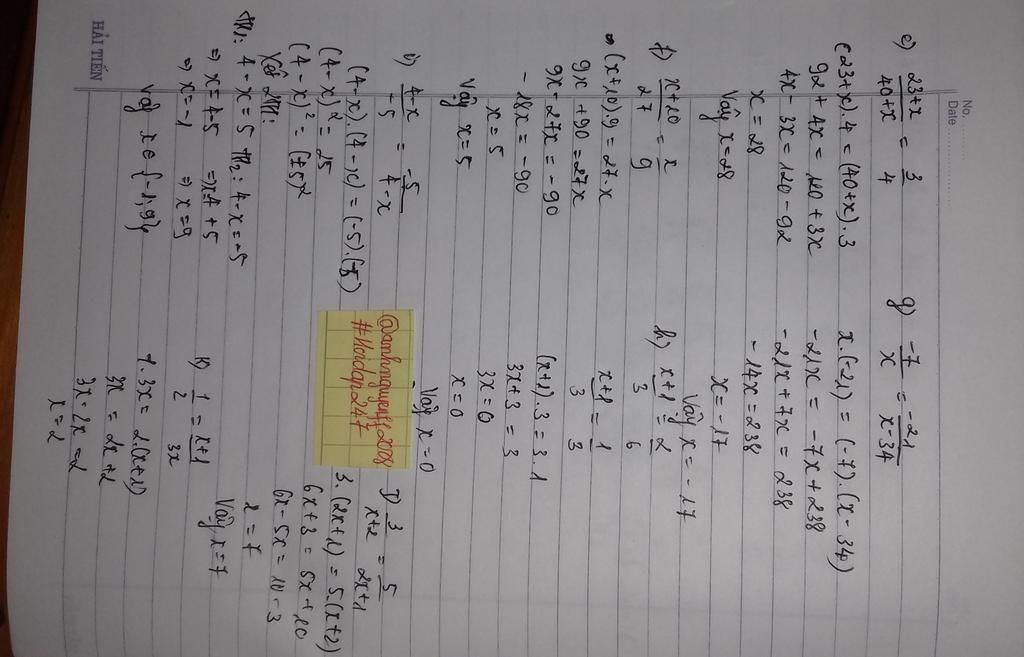 No.
Date
e) 23+x/40+x = 3/4
(23+x).4 = (40+x).3
92 + 4x = 120 + 3x
4x - 3x = 120 - 92
x = 28
Vậy x = 28
f) x+10/27 = x/9
(x+10).9 = 27.x
9x + 90 = 27x
9x - 27x = -90
-18x = -90
x = 5
Vậy x = 5
i) 4-x/-5 = -5/4-x
(4-x).(4-x) = (-5).(-5)
(4-x)² = 25
(4-x)² = (±5)²
Xét 2TH:
TH1: 4-x = 5 TH2: 4-x = -5
⇒ x = 4-5 ⇒ x = 4+5
⇒ x = -1 ⇒ x = 9
Vậy x ∈ {-1,9}
g) -7/x = -21/x-34
x.(-21) = (-7).(x-34)
-21x = -7x + 238
-21x + 7x = 238
-14x = 238
x = -17
Vậy x = -17
h) x+1/3 = 2/6
x+1/3 = 1/3
(x+1).3 = 3.1
3x+3 = 3
3x = 0
x = 0
Vậy x = 0
@anhnguyenff2008
#Hoidap247
j) 3/x+2 = 5/2x+1
3.(2x+1) = 5.(x+2)
6x+3 = 5x+10
6x - 5x = 10 - 3
x = 7
Vậy x = 7
k) 1/2 = x+1/3x
1.3x = 2(x+1)
3x = 2x+2
3x - 2x = 2
x = 2
HẢI TIẾN